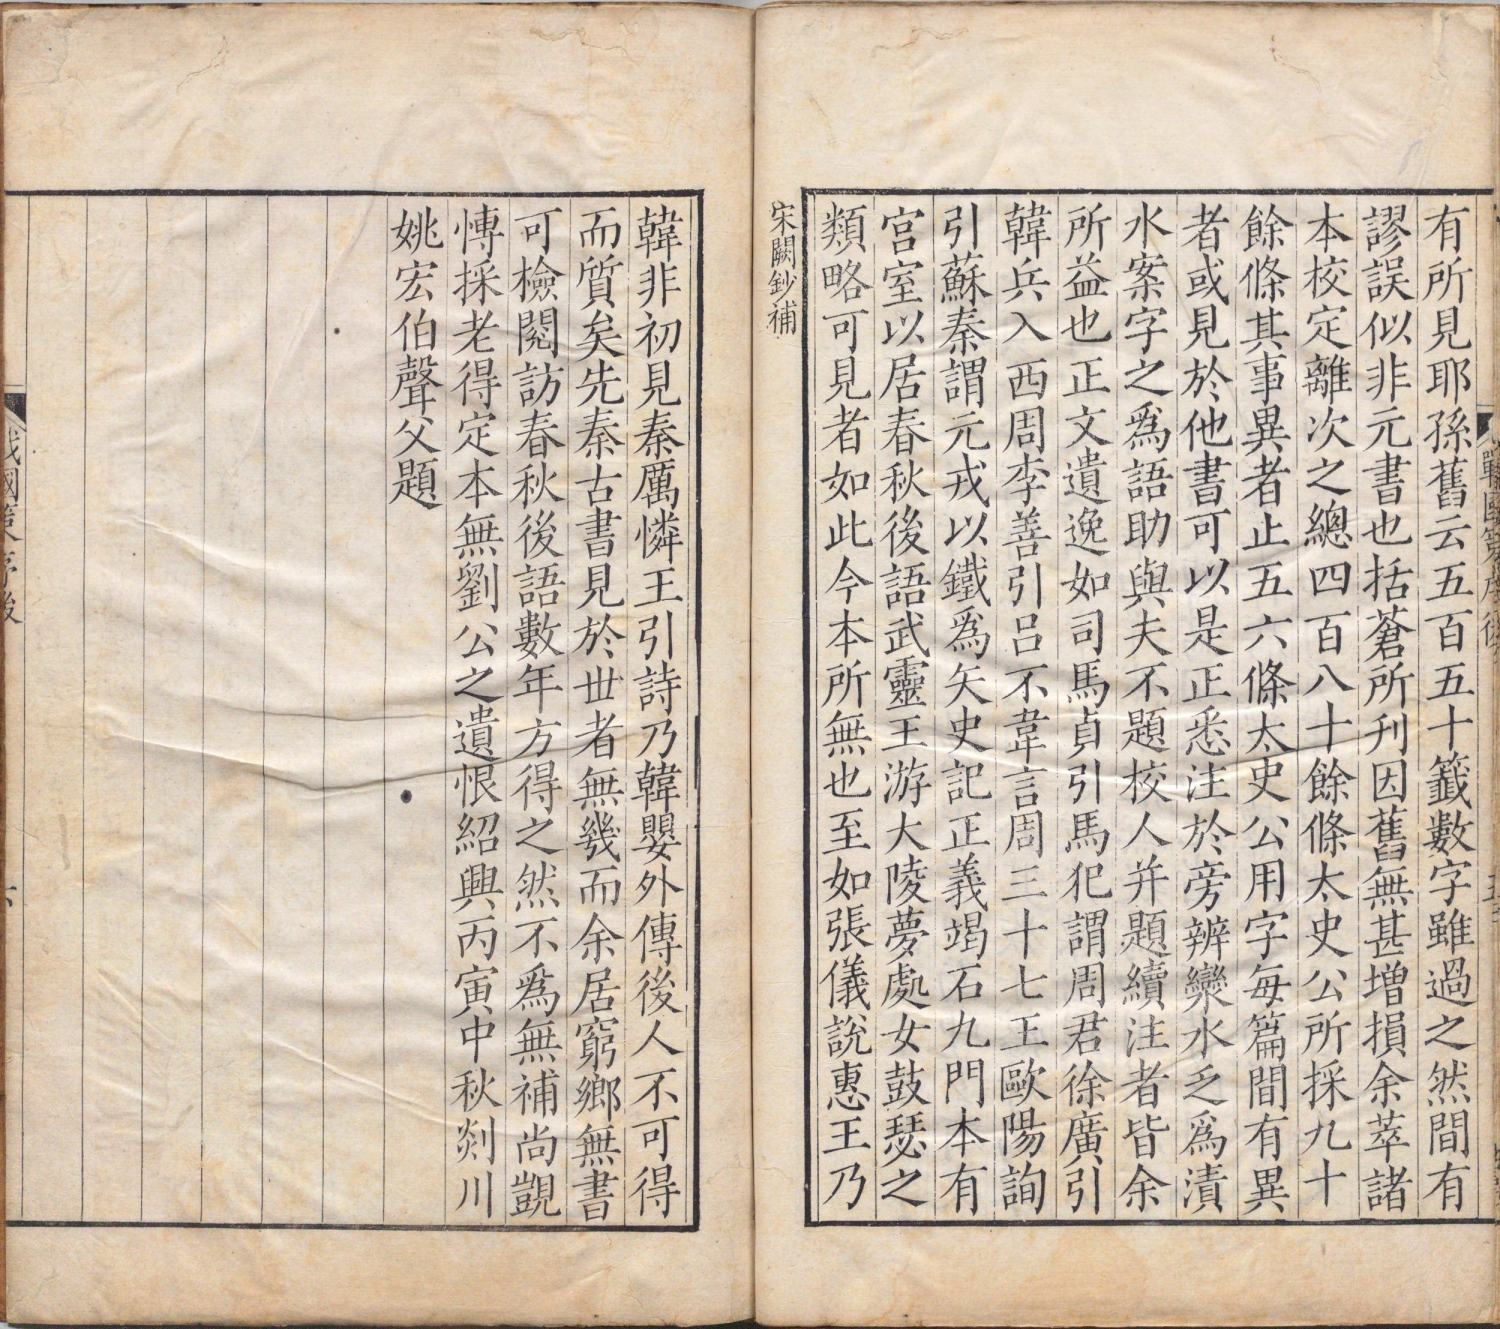 有所見耶孫舊云五百五十籤數字雖過之然間有
謬誤似非元書也括蒼所刊因舊無甚增損余萃諸
本校定離次之總四百八十餘條太史公所採九十
餘條其事異者止五六條太史公用字每篇間有異
者或見於他書可以是正悉注於旁辨灓水之爲漬
水案字之爲語助與夫不題校人并題續注者皆余
所益也正文遺逸如司馬貞引馬犯謂周君徐廣引
韓兵入西周李善引呂不韋言周三十七王歐陽詢
引蘇秦謂元戎以鐵爲矢史記正義竭石九門本有
宮室以居春秋後語武靈王游大陵夢處女鼓瑟之
類略可見者如此今本所無也至如張儀說惠王乃
宋闕鈔補
韓非初見秦厲憐王引詩乃韓嬰外傳後人不可得
而質矣先秦古書見於世者無幾而余居窮鄉無書
可檢閱訪春秋後語數年方得之然不爲無補尚覬
愽採老得定本無劉公之遺恨紹興丙寅中秋剡川
姚宏伯聲父題
戰國策序後